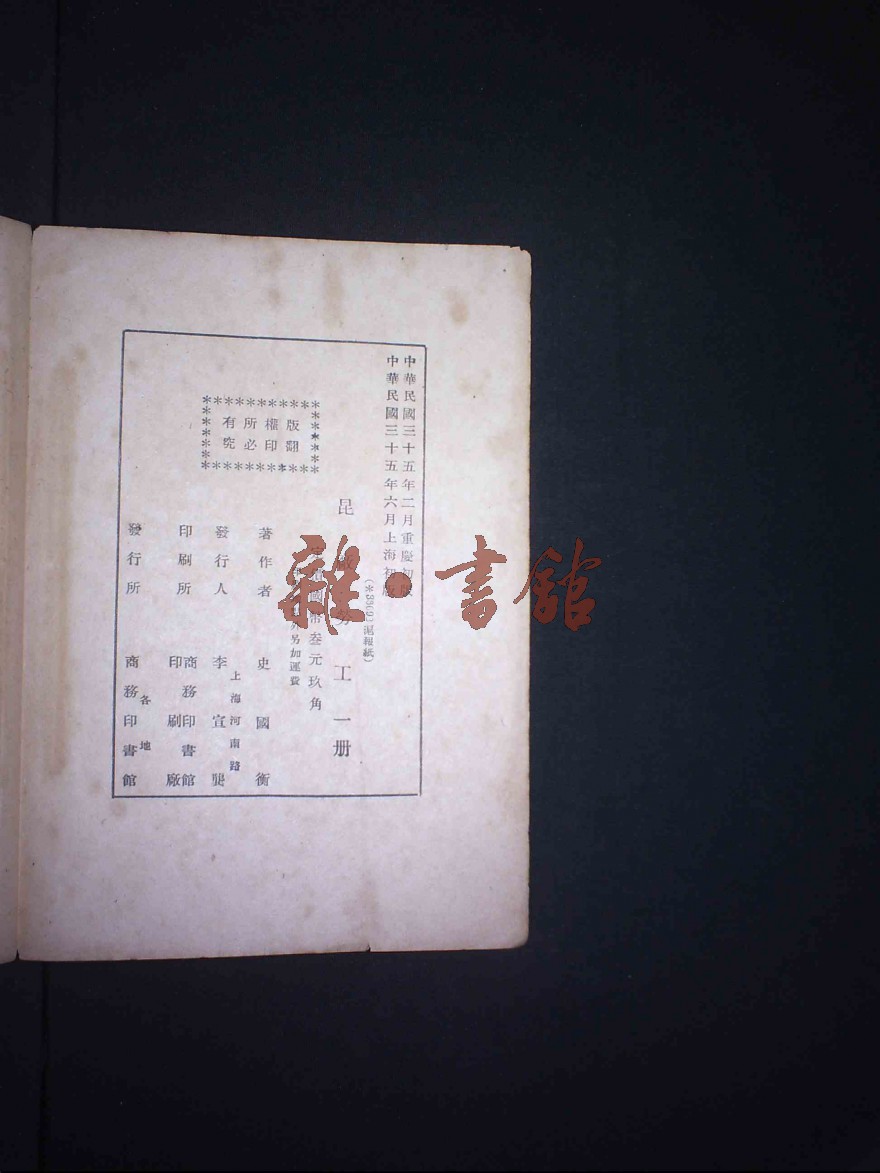 中華民國三十五年二月重慶初版
中華民國三十五年六月上海初版
(*35691滬報紙)
昆廠勞工一册
定價國幣叁元玖角
外另加運費
著作者 史國衡
上海河南路
發行人 李宣龔
印刷所 商務印書館印刷廠
各地
發行所 商務印書館
版權所有
翻印必究
雜·書館